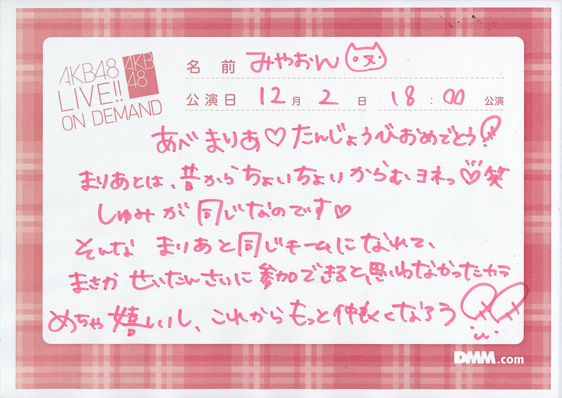 AKB48
LIVE!!
ON DEMAND
AKB
48
名前 みやおん
公演日 12月2日 18:00 公演
あべまりあ♡たんじょうびおめでとう!
まりあとは、昔からちょいちょいからむ、ヨネっ♡笑
しゅみが同じなのです♡
そんな まりあと同じチームになれて、
まさか せいたんさいに参加できると思いわなかったカラ
めちゃ嬉しいし、これからもっと仲良くなろう
DMM.com